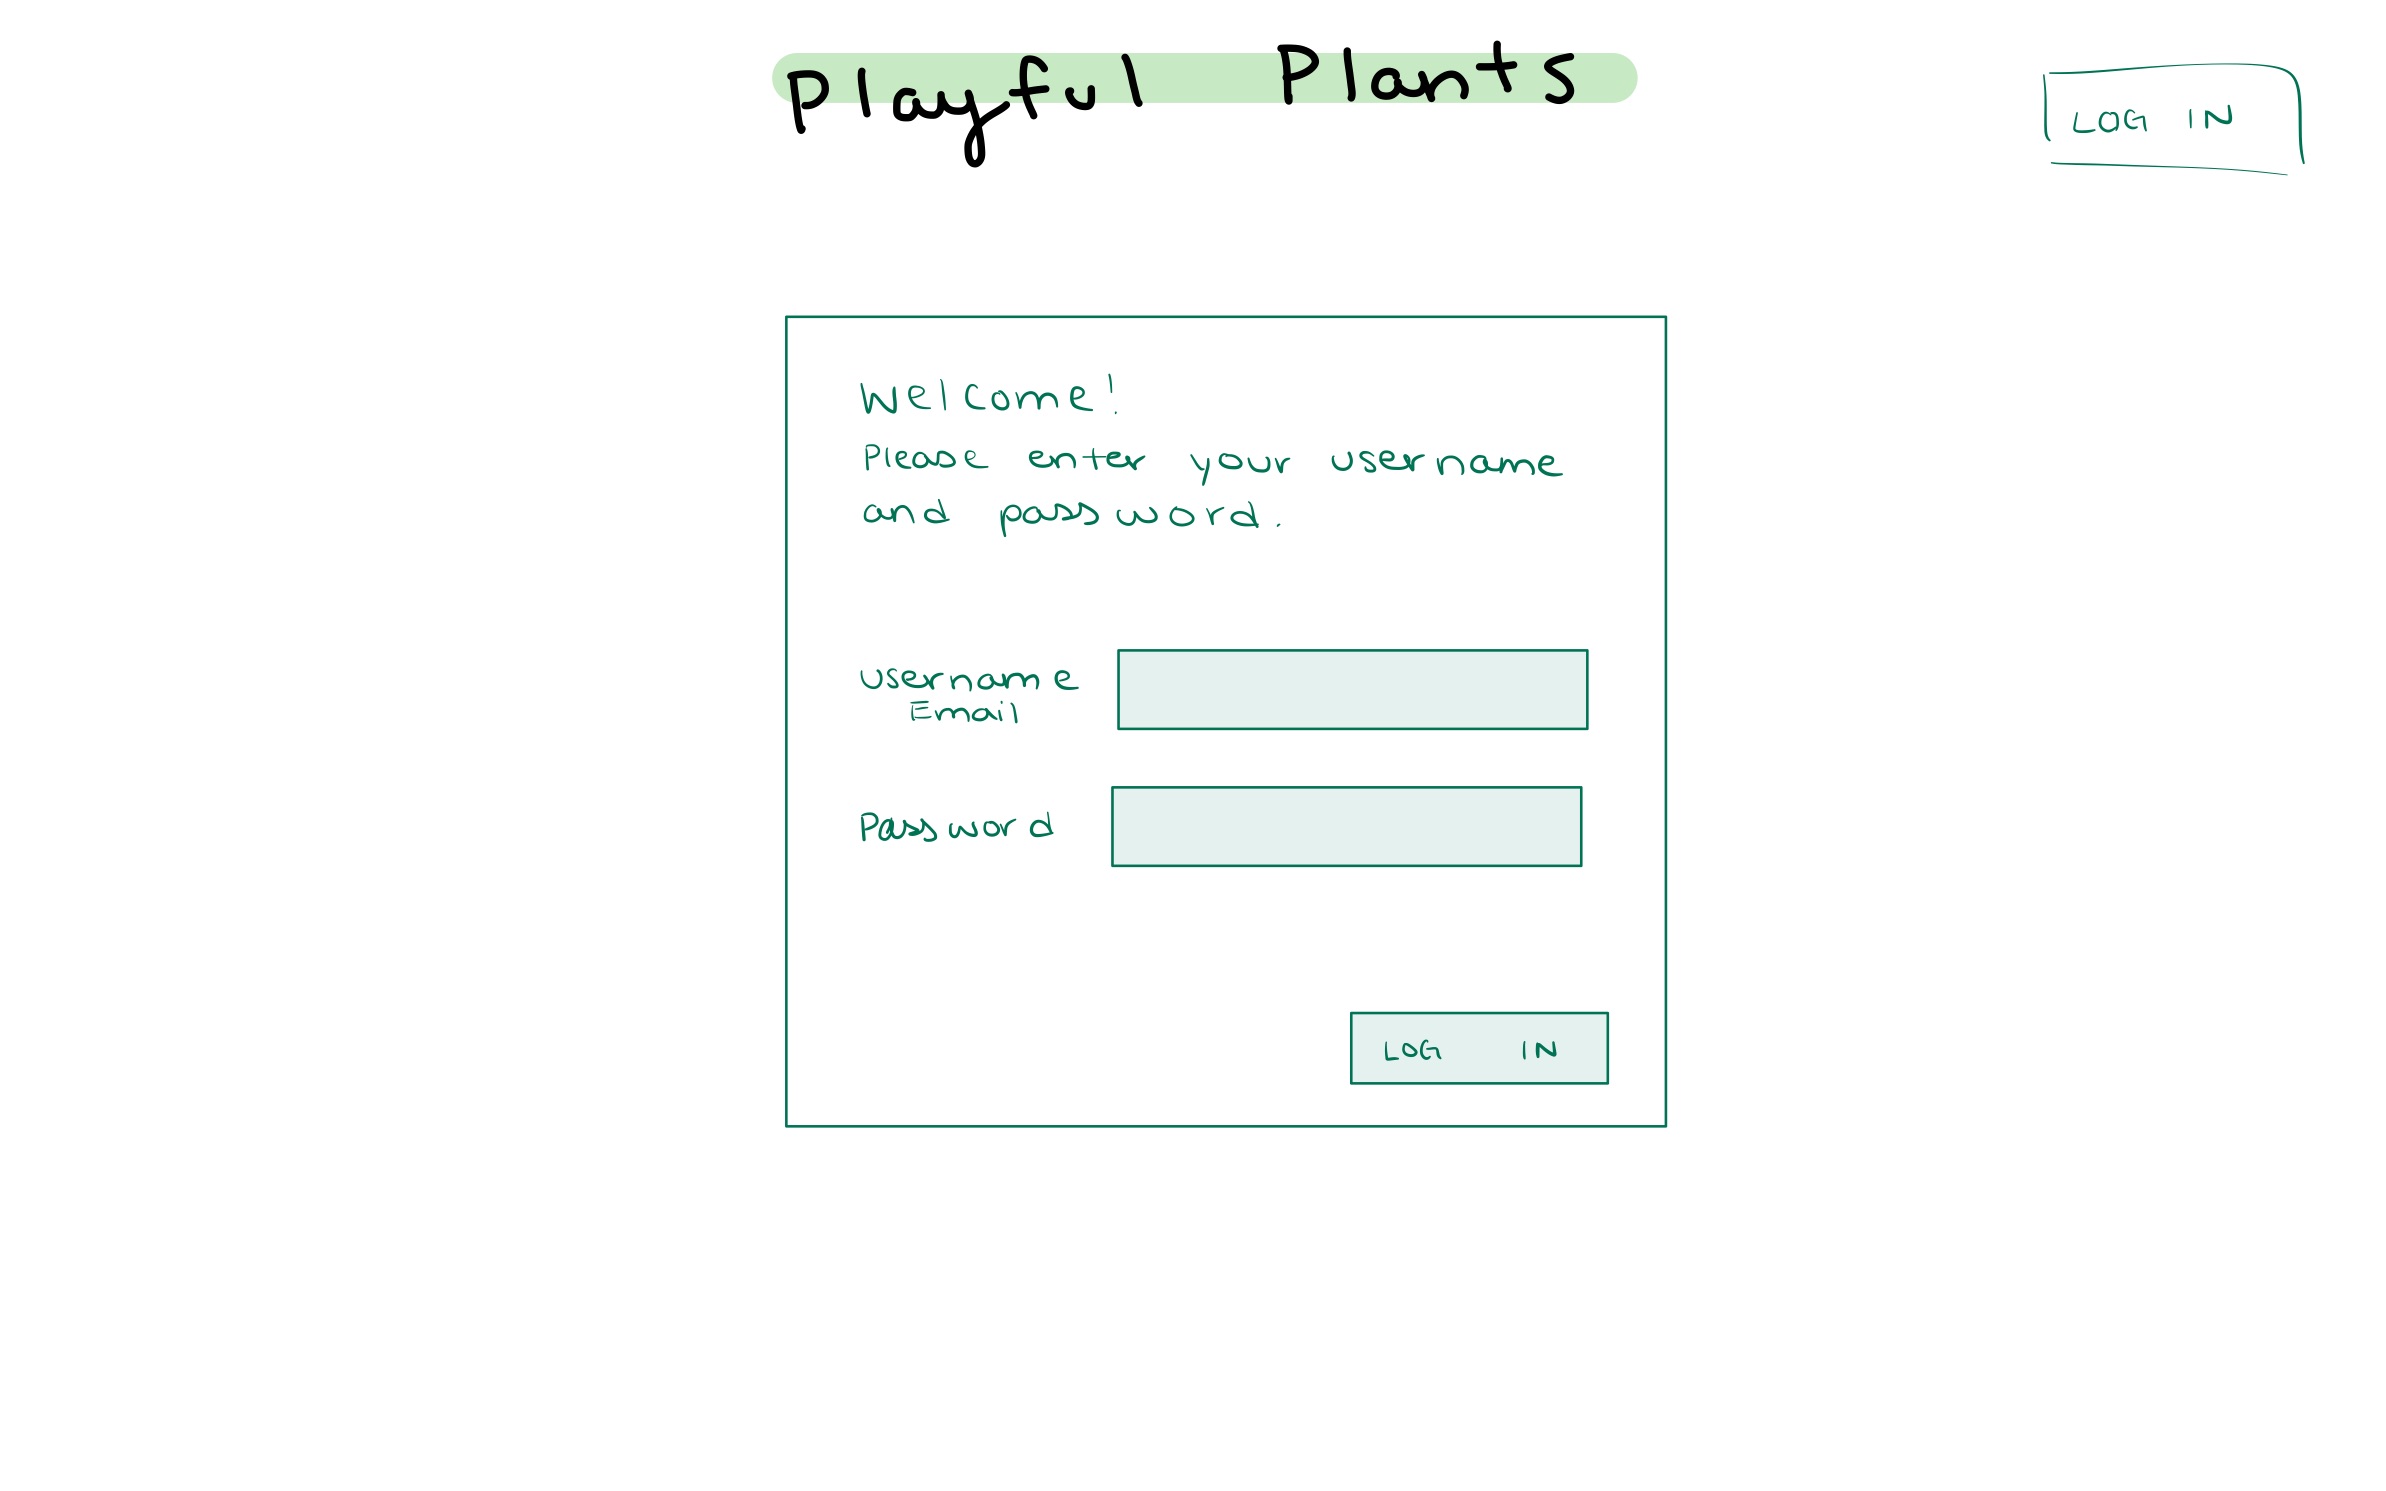 Playful Plants
LOG IN
Welcome!
Please enter your username
and password.
Username
Email
Password
LOG IN